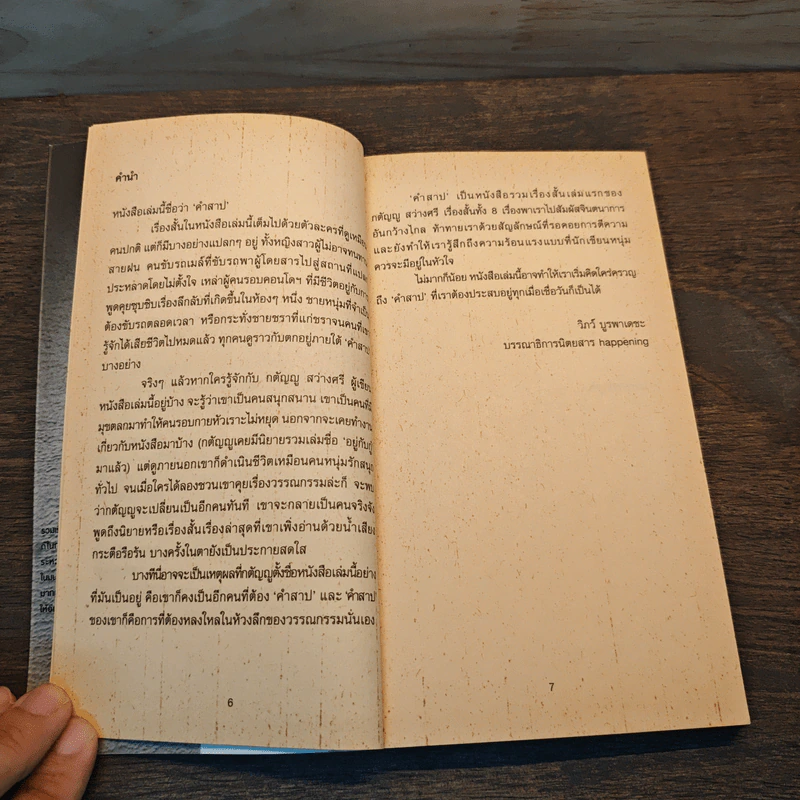 คำนำ
หนังสือเล่มนี้ชื่อว่า ‘คำสาป’
เรื่องสั้นในหนังสือเล่มนี้เต็มไปด้วยตัวละครที่ดูเหมือน
คนปกติ แต่ก็มีบางอย่างแปลกๆ อยู่ ทั้งหญิงสาวผู้ไม่อาจทน
สายฝน คนขับรถเมล์ที่ขับรถพาผู้โดยสารไปสู่สถานที่
ประหลาดโดยไม่ตั้งใจ เหล่าผู้คนรอบคอนโดฯ ที่มีชีวิตอยู่กับการ
พูดคุยซุบซิบเรื่องลึกลับที่เกิดขึ้นในห้องๆ หนึ่ง ชายหนุ่มที่
ต้องขับรถตลอดเวลา หรือกระทั่งชายชราที่แก่ชราจนคนที่
รู้จักได้เสียชีวิตไปหมดแล้ว ทุกคนดูราวกับตกอยู่ภายใต้ ‘คำสาป’
บางอย่าง
จริงๆ แล้วหากใครรู้จักกับ กตัญญู สว่างศรี ผู้เขียน
หนังสือเล่มนี้อยู่บ้าง จะรู้ว่าเขาเป็นคนสนุกสนาน เขาเป็นคนที่มี
มุขตลกมาทำให้คนรอบกายหัวเราะไม่หยุด นอกจากจะเคยทำงาน
เกี่ยวกับหนังสือมาบ้าง (กตัญญูเคยมีนิยายรวมเล่มชื่อ ‘อยู่กับกู๋’
มาแล้ว) แต่ดูภายนอกเขาก็ดำเนินชีวิตเหมือนคนหนุ่มรักสนุก
ทั่วไป จนเมื่อใครได้ลองชวนเขาคุยเรื่องวรรณกรรมล่ะก็ จะพบ
ว่ากตัญญูจะเปลี่ยนเป็นอีกคนทันที เขาจะกลายเป็นคนจริงจัง
พูดถึงนิยายหรือเรื่องสั้นเรื่องล่าสุดที่เขาเพิ่งอ่านด้วยน้ำเสียง
กระตือรือร้น บางครั้งในตายังเป็นประกายสดใส
บางทีนี่อาจจะเป็นเหตุผลที่กตัญญูตั้งชื่อหนังสือเล่มนี้อย่าง
ที่มันเป็นอยู่ คือเขาก็คงเป็นอีกคนที่ต้อง ‘คำสาป’ และ ‘คำสาป’
ของเขาก็คือการที่ต้องหลงใหลในห้วงลึกของวรรณกรรมนั่นเอง
6
‘คำสาป’ เป็นหนังสือรวมเรื่องสั้นเล่มแรกของ
กตัญญู สว่างศรี เรื่องสั้นทั้ง 8 เรื่องพาเราไปสัมผัสจินตนาการ
อันกว้างไกล ท้าทายเราด้วยสัญลักษณ์ที่รอคอยการตีความ
และยังทำให้เรารู้สึกถึงความร้อนแรงแบบที่นักเขียนหนุ่ม
ควรจะมีอยู่ในหัวใจ
ไม่มากก็น้อย หนังสือเล่มนี้อาจทำให้เราเริ่มคิดใคร่ครวญ
ถึง ‘คำสาป’ ที่เราต้องประสบอยู่ทุกเมื่อเชื่อวันก็เป็นได้
วิภว์ บูรพาเดชะ
บรรณาธิการนิตยสาร happening
7